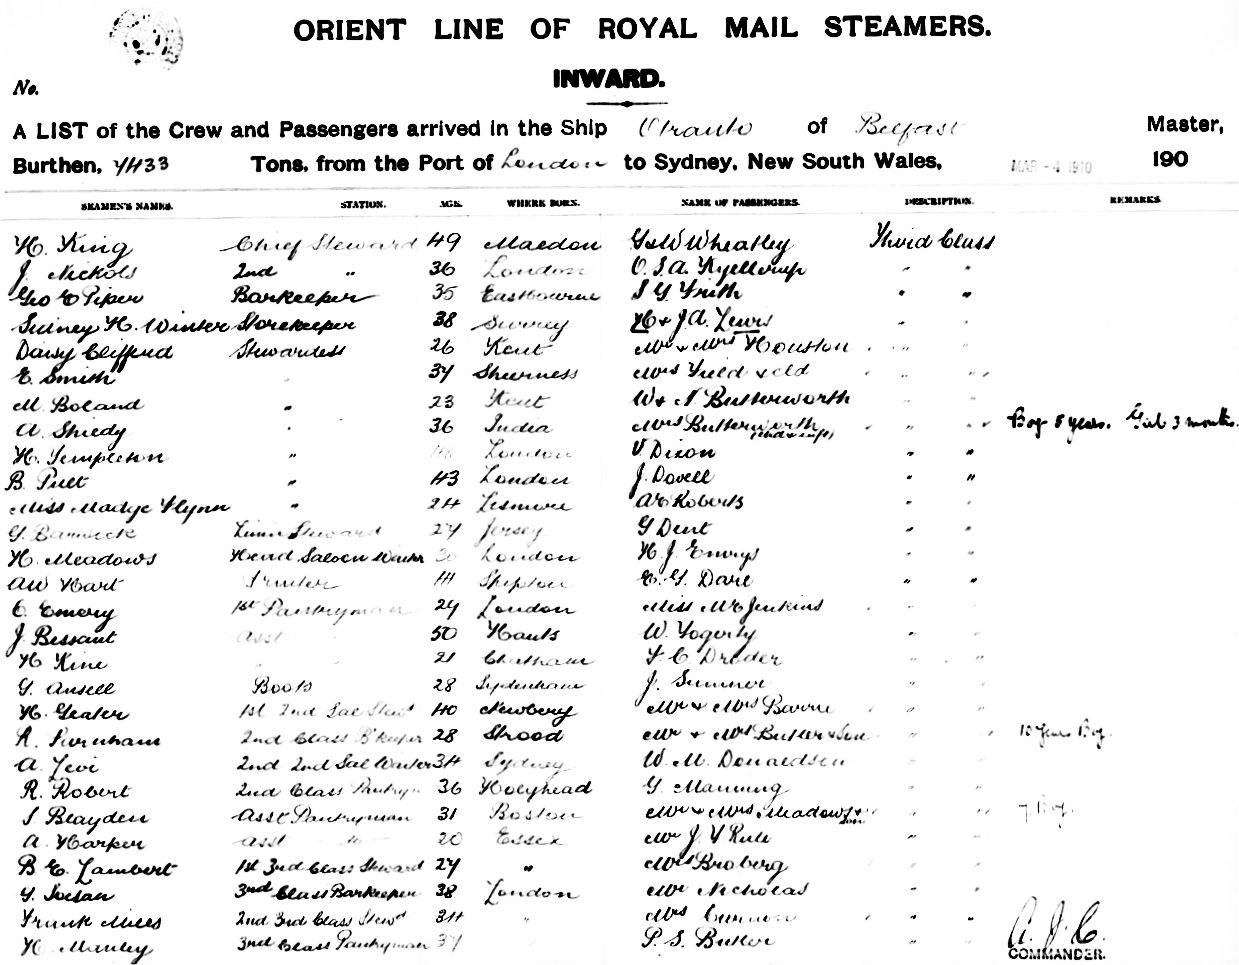 ORIENT LINE OF ROYAL MAIL STEAMERS.
INWARD.
No.
A LIST of the Crew and Passengers arrived in the Ship Otranto of Belfast Master,
Burthen, 7433 Tons, from the Port of London to Sydney, New South Wales, MAR -4 1910 190
SEAMEN'S NAMES. STATION. AGE. WHERE BORN. NAME OF PASSENGERS. DESCRIPTION. REMARKS.
H. King Chief Steward 49 Maldon G & W Wheatley Third Class
J. Nickols 2nd " 36 London O. S. A. Kjellerup " "
Geo E Piper Barkeeper 35 Eastbourne S G Frith " "
Sidney H. Winter Storekeeper 38 Surrey H & J. A. Lewis " "
Daisy Clifford Stewardess 26 Kent Mr & Mrs Houston " "
E. Smith " 37 Sheerness Mrs Field & cld " "
M. Boland " 23 Kent W & N Butterworth " "
A. Sheedy " 36 India Mrs Butterworth " " Boy 5 years. Girl 3 months.
H. Templeton " London V Dixon " "
B. Pull " 43 London J. Dovell " "
Miss Madge Flynn " 24 Lismore A E Roberts " "
G. Linen Steward 27 Jersey G Dent " "
H. Meadows Head Saloon Waiter London H. J. Emrys " "
AW Hart Printer Shipton E. G. Dare " "
C. Emery 1st Pantryman 29 London Miss Jenkins " "
J. Bessant Asst 50 Hants W. Fogerty "
H Kine 21 Chatham F. C. "
G. Ansell Boots 28 Sydenham J. Sumner "
H. Geater 1st 2nd Sal Stewd 40 Newbery Mr & Mrs Barrie "
R. Furnham 2nd Class B'keeper 28 Strood Mr & Mrs Butler & Son " 10 Years Boy.
A. Levi 2nd 2nd Sal Waiter 34 Sydney W. M. Donaldson "
R. Robert 2nd Class Pantryn 36 Holyhead G. Manning "
S Blayden Asst Pantryman 31 Boston Mr & Mrs Meadows & son " 7 Boy.
A Harper Asst " 20 Essex Mr J. F Rule "
B E. Lambert 1st 3rd Class Steward 27 " Mrs Broberg "
G. 3rd Class Barkeeper 38 London Mr Nicholas " "
Frank Mills 2nd 3rd Class Stewd 34 " Mrs " "
H. Manley 3rd Class Pantryman 37 P. S. Butler " "
A. J. C.
COMMANDER.